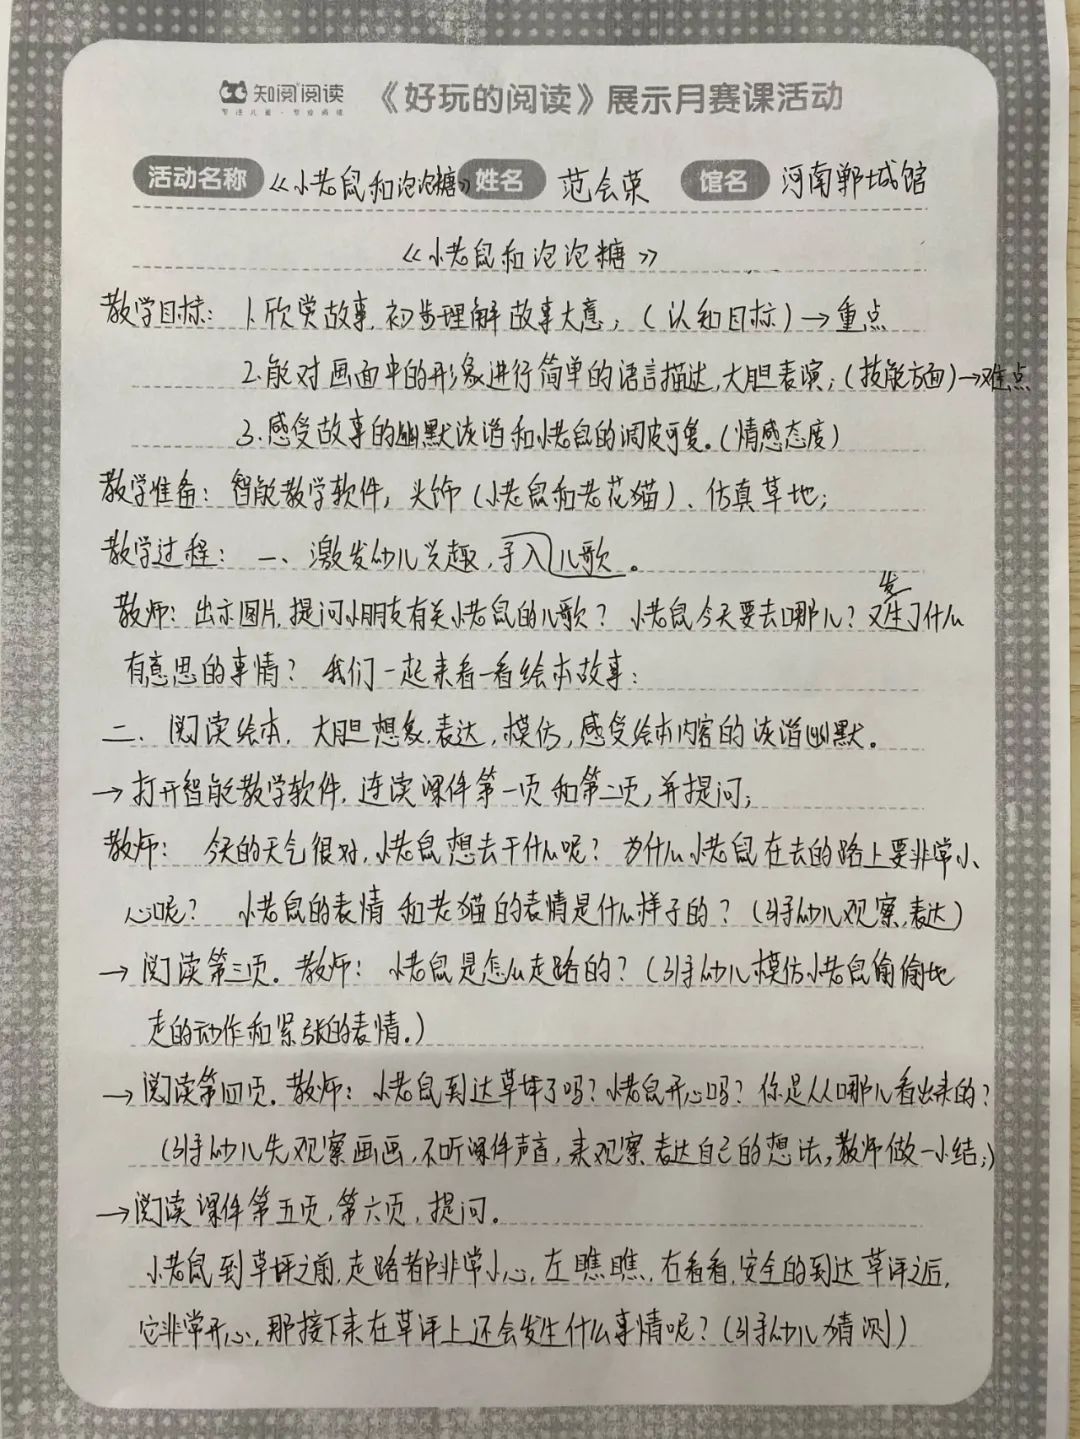 知阅阅读
专注儿童·专业阅读
《好玩的阅读》展示月赛课活动
活动名称 《小老鼠和泡泡糖》 姓名 范会荣 馆名 河南郸城馆
《小老鼠和泡泡糖》
教学目标: 1.欣赏故事,初步理解故事大意;(认知目标)→重点
2.能对画面中的形象进行简单的语言描述,大胆表演;(技能方面)→难点
3.感受故事的幽默诙谐和小老鼠的调皮可爱。(情感态度)
教学准备: 智能教学软件,头饰(小老鼠和老花猫)、仿真草地;
教学过程: 一、激发幼儿兴趣,导入儿歌。
教师:出示图片,提问小朋友有关小老鼠的儿歌? 小老鼠今天要去哪儿?又发生了什么
有意思的事情? 我们一起来看一看绘本故事:
二、阅读绘本,大胆想象.表达,模仿,感受绘本内容的诙谐幽默。
→打开智能教学软件,连读课件第一页和第二页,并提问;
教师: 今天的天气很好,小老鼠想去干什么呢? 为什么小老鼠在去的路上要非常小
心呢? 小老鼠的表情和老猫的表情是什么样子的?(引导幼儿观察,表达)
→阅读第三页.教师: 小老鼠是怎么走路的?(引导幼儿模仿小老鼠偷偷地
走的动作和紧张的表情。)
→阅读第四页.教师: 小老鼠到达草坪了吗?小老鼠开心吗?你是从哪儿看出来的?
(引导幼儿先观察画画,不听课件声音,来观察表达自己的想法,教师做一小结;)
→阅读课件第五页,第六页,提问。
小老鼠到草坪之前,走路都非常小心,左瞧瞧,右看看,安全的到达草评之后,
它非常开心,那接下来在草评上还会发生什么事情呢?(引导幼儿猜测)